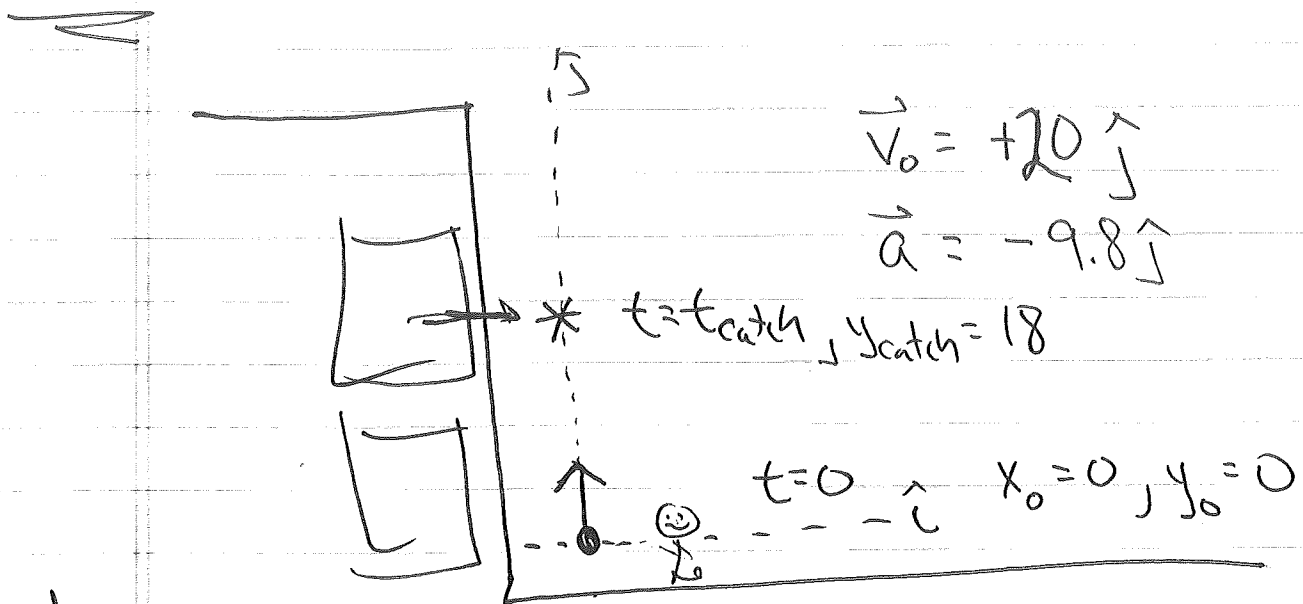 ĵ
v⃗₀ = +20 ĵ
a⃗ = -9.8 ĵ
t = t_catch, y_catch = 18
t=0 î x₀=0, y₀=0